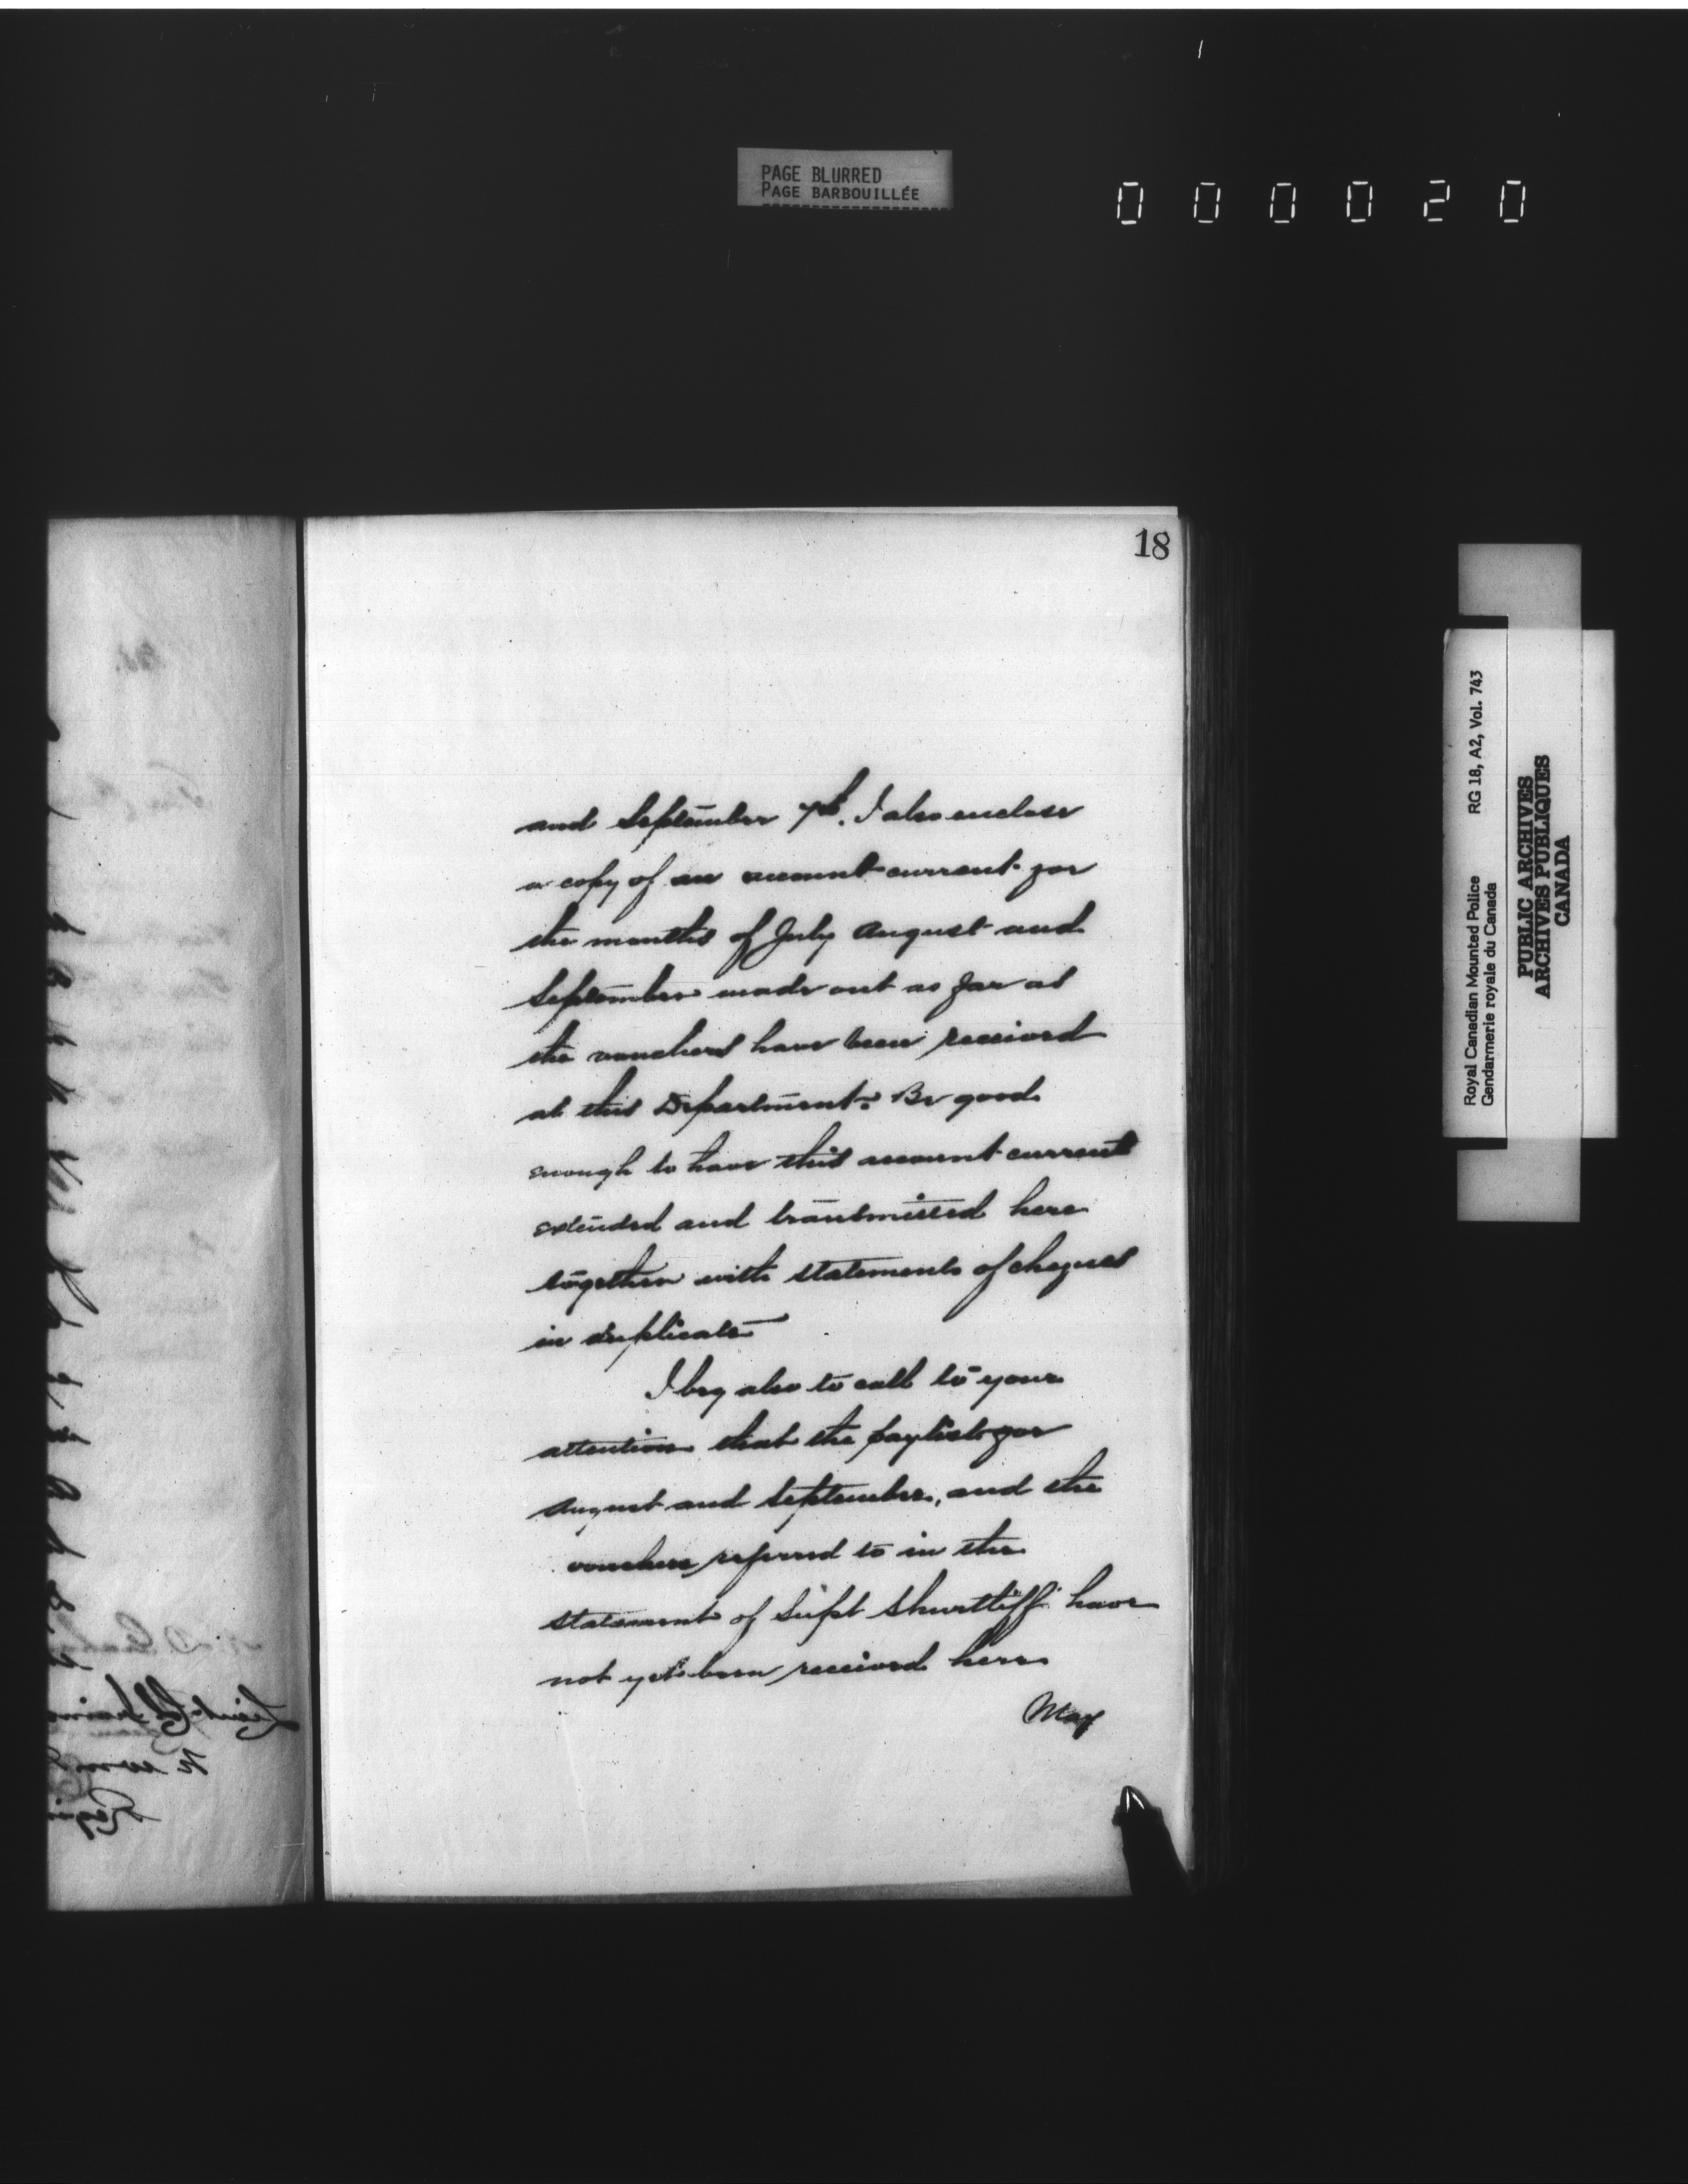 PAGE BLURRED
PAGE BARBOUILLÉE
000020
18
and September 7th. I also enclose
a copy of an account current for
the months of July August and
September made out as far as
the vouchers have been received
at this Department. Be good
enough to have this account current
extended and transmitted here
together with statements of cheques
in duplicate
I beg also to call to your
attention that the paylist for
August and September, and the
vouchers referred to in the
statement of Supt Shurtliff have
not yet been received here
May
Royal Canadian Mounted Police RG 18, A2, Vol. 743
Gendarmerie royale du Canada
PUBLIC ARCHIVES
ARCHIVES PUBLIQUES
CANADA